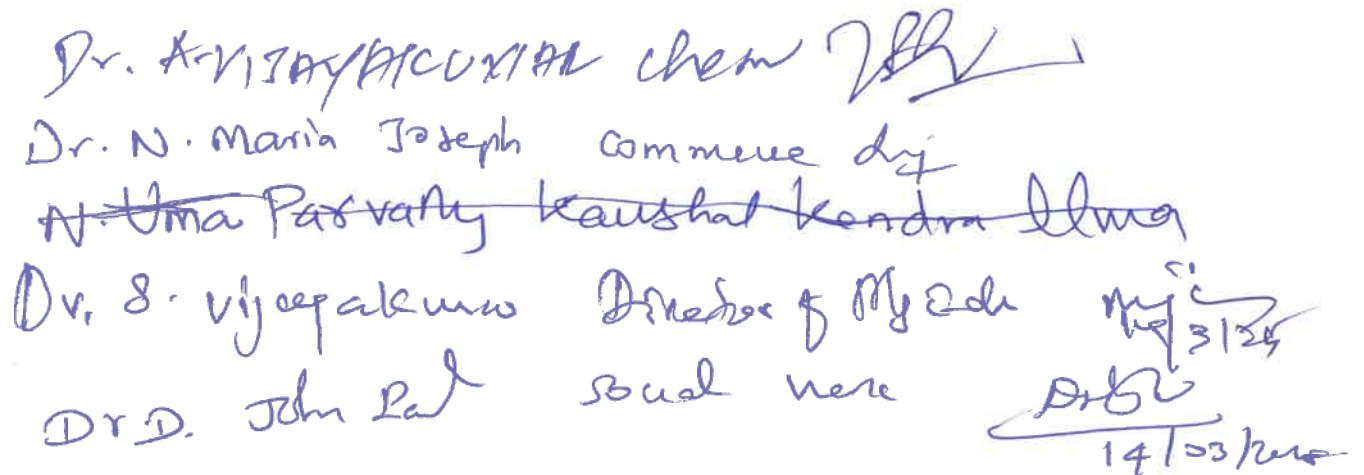 Dr. A. VIJAYAKUMAR Chem
Dr. N. Maria Joseph commerce
N. Uma Parvathy Kaushal Kendra Uma
Dr. S. Vijayakumar Director of Phy Edn
Dr D. John Paul social work
14/03/2025